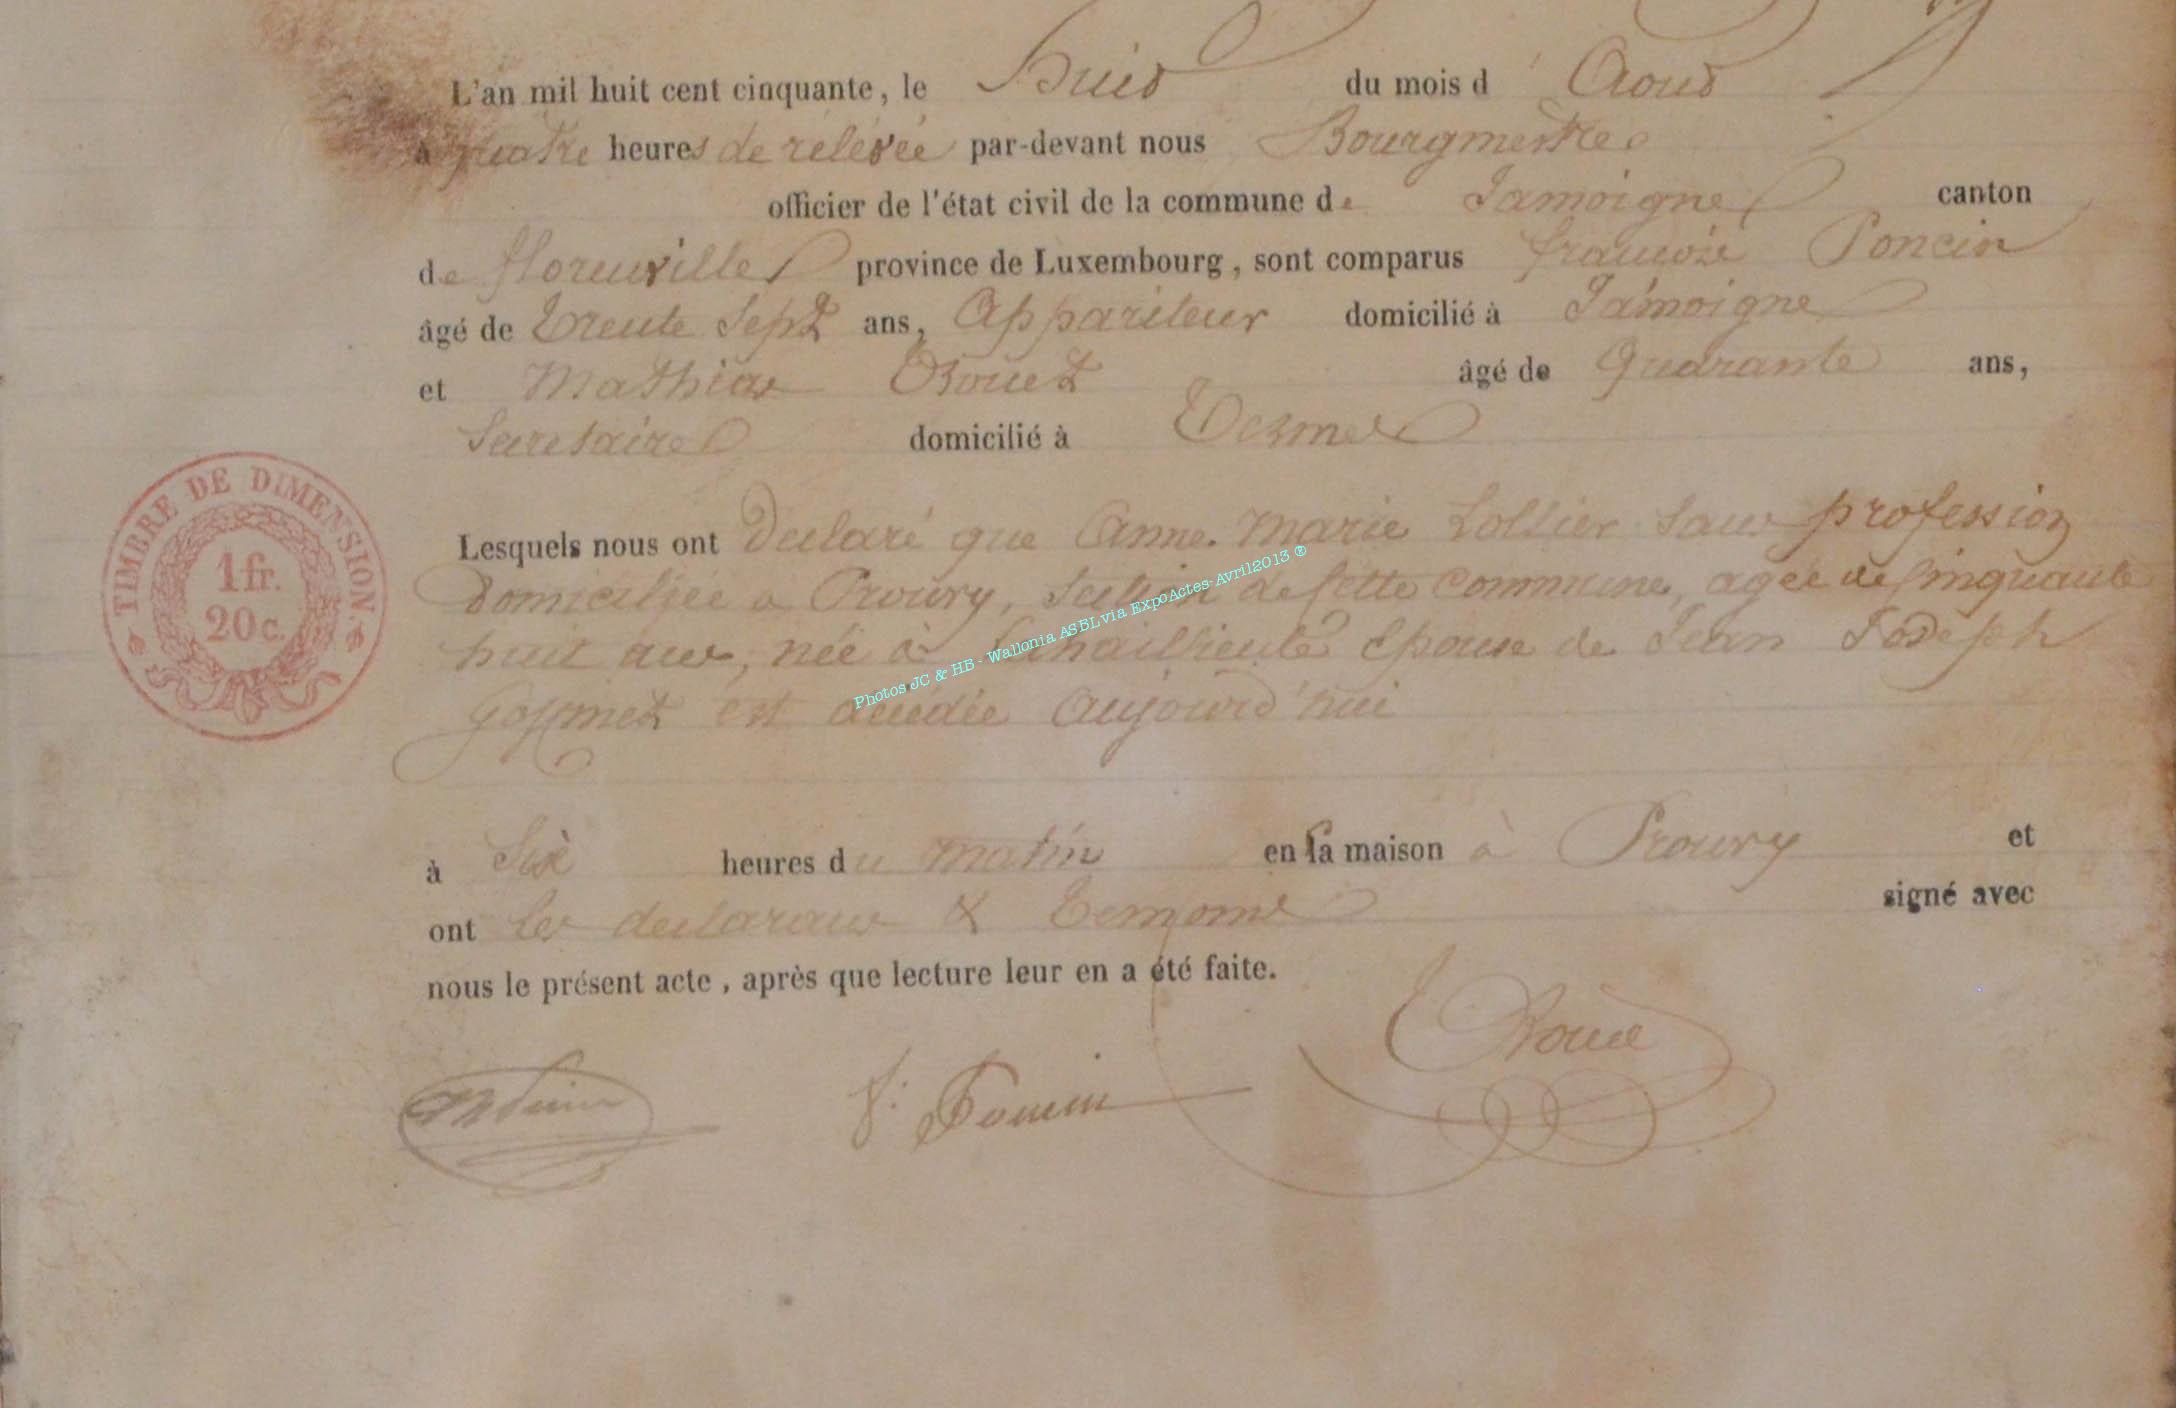 L'an mil huit cent cinquante, le huit du mois d'Aout
à quatre heures de rélévée par-devant nous Bourgmestre
officier de l'état civil de la commune de Jamoigne canton
de florenville province de Luxembourg, sont comparus françois Poncin
âgé de trente sept ans, Appariteur domicilié à Jamoigne
et Mathias âgé de Quarante ans,
Secretaire domicilié à Termes
Lesquels nous ont declaré que Anne. Marie Lollier sans profession
domiciliée a Prouvy, section de cette commune, agée de cinquante
huit ans, née à Epouse de Jean Joseph
est décédée aujourd'hui
à six heures du matin en sa maison à Prouvy et
ont les declarans & temoins signé avec
nous le présent acte, après que lecture leur en a été faite.
f. Poncin
TIMBRE DE DIMENSION.
1 fr.
20 c.
Photos JC & HB - Wallonia ASBL via ExpoActes-Avril2013 ®